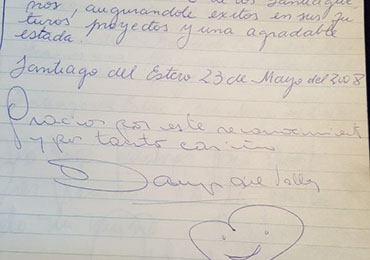 nos, augurandole exitos en sus fu
turos proyectos y una agradable
estada.
Santiago del Estero 23 de Mayo del 2008
Gracias por este reconocimient
y por tanto cariño